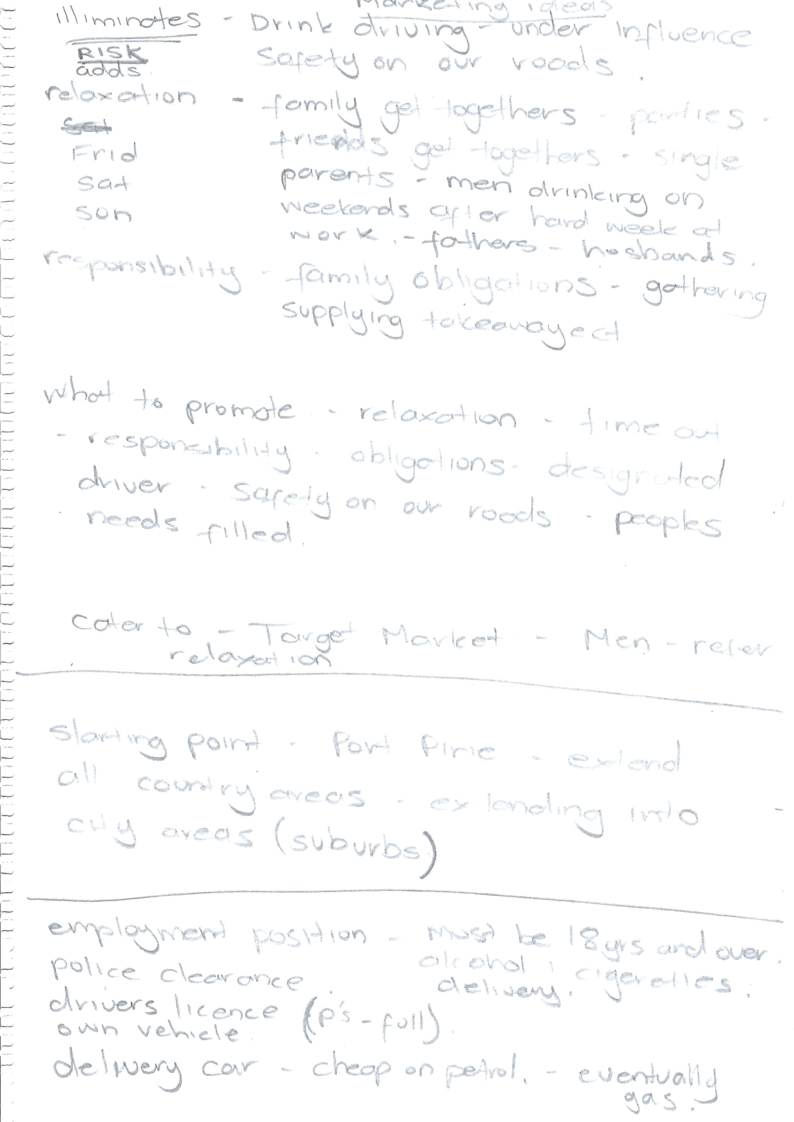 Marketing ideas
illiminates - Drink driving - under Influence
RISK safety on our roads.
adds.
relaxation - family get togethers - parties -
Frid friends get togethers - single
sat parents - men drinking on
son weekends after hard week at
work. - fathers - husbands.
responsibility - family obligations - gathering
supplying takeawayect
what to promote - relaxation - time out
- responsibility - obligations - designated
driver - safety on our roads - peoples
needs filled.
cator to - Target Market - Men - refer
relaxation
starting point - Port Pirie - extend
all country areas - extending into
city areas (suburbs)
employment position - must be 18yrs and over.
police clearance. alcohol; cigerettes.
delivery.
drivers licence (p's - full).
own vehicle.
delivery car - cheap on petrol. - eventually
gas.